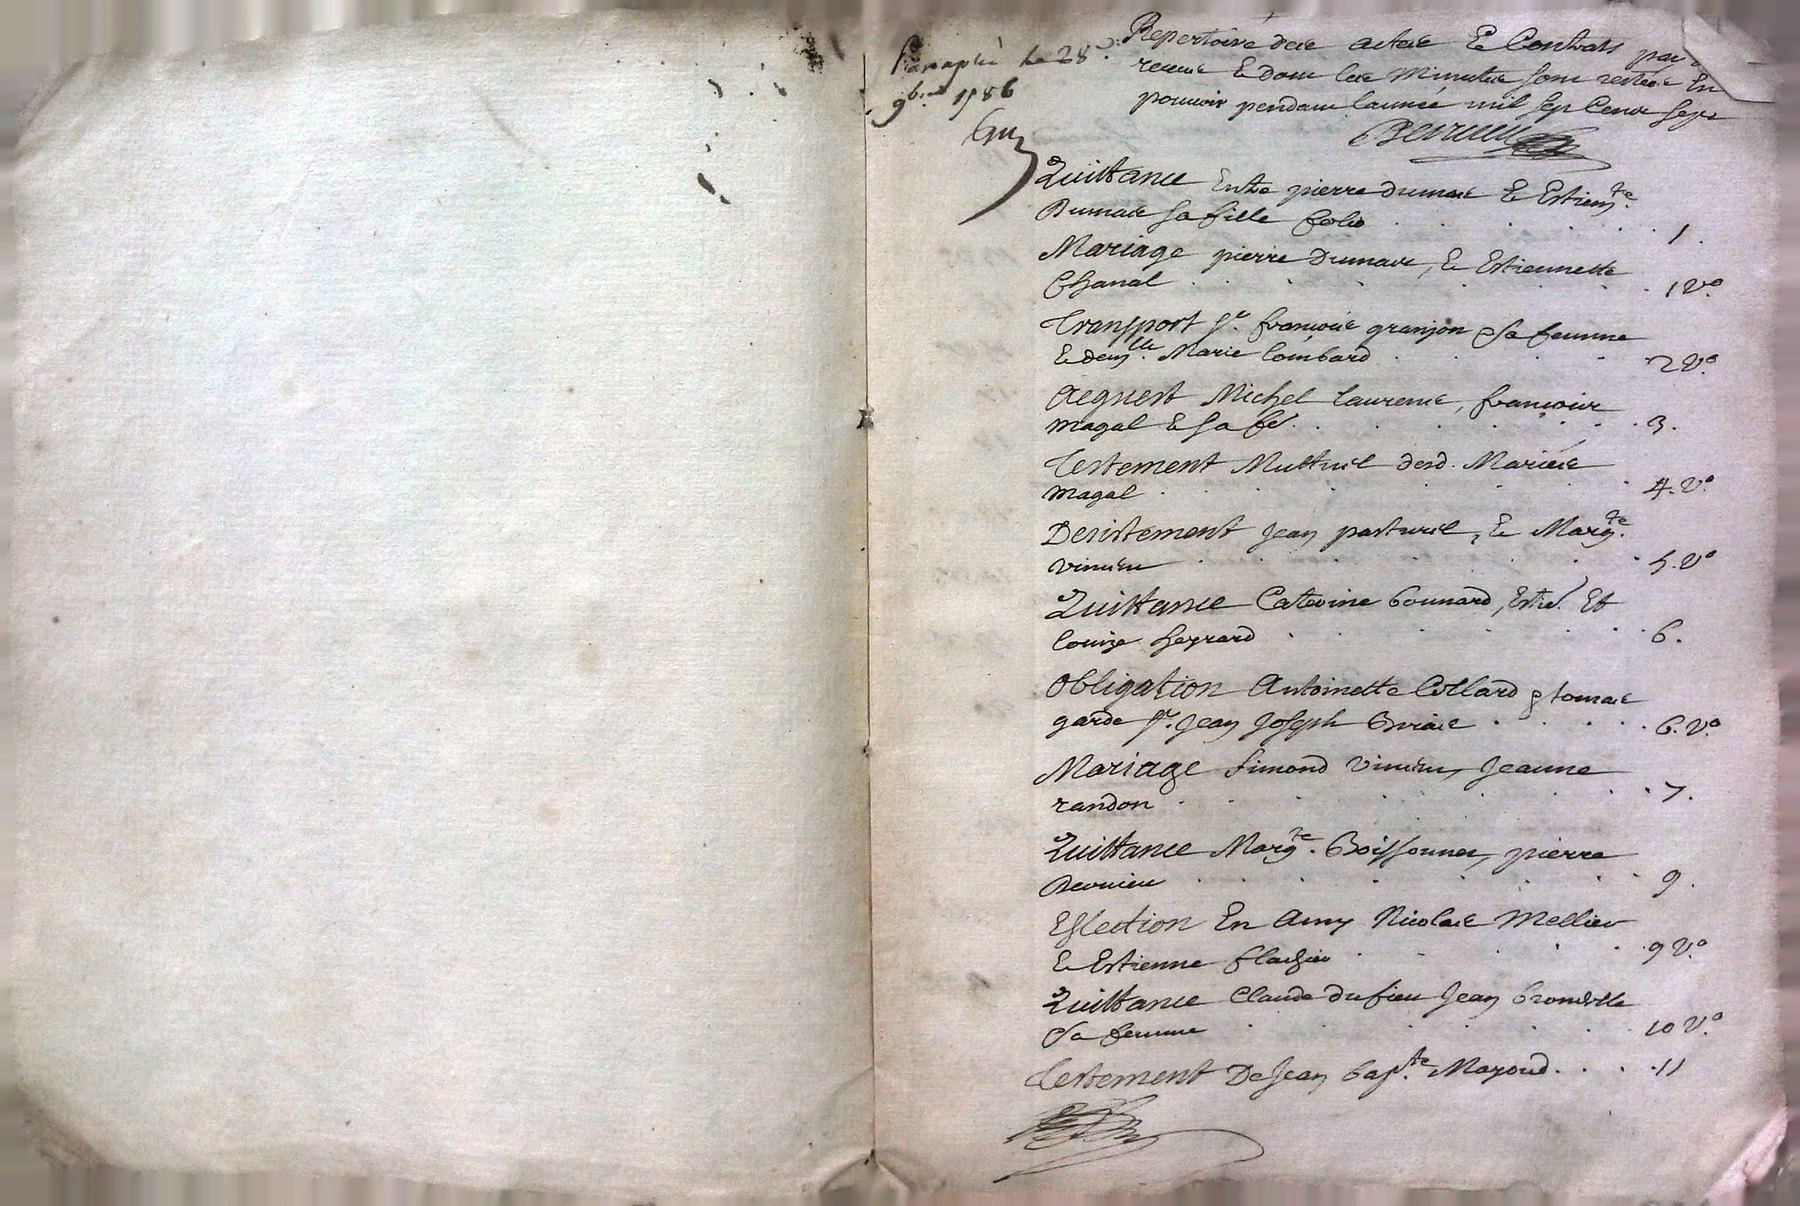 Paraphé le 28
9bre 1786
Repertoire des actes & Contrats par
receus & dont les Minutes sont restées En
pouvoir pendant l'année mil sept Cents sept
Quittance Entre pierre Dumas & Estiente.
Dumas sa fille folio . . . 1.
Mariage pierre Dumas, & Estiennette
Chanal . . . 1 Vo.
Transport Sr. francois granjon & sa femme
& demlle. Marie Lombard . . . 2 Vo.
Acquest Michel Laurens, francois
Magal & sa fe. . . . 3.
Testement Muttuel desd. Mariés
Magal . . . 4. Vo.
Desistement Jean pasturel, & Margte.
. . . 5. Vo
Quittance Caterine Bonnard, Et
Louize heyrard . . . 6.
Obligation Antoinette Collard & tomas
garde Sr. Jean Joseph . . . 6. Vo.
Mariage Simond Jeanne
randon . . . 7.
Quittance Margte. Boissonnet, pierre
. . . 9.
Eslection En amy Nicolas Mellier
& Estienne flachier . . . 9 Vo.
Quittance Claude Dufieu Jean
& sa femme . . . 10 Vo.
Testement De Jean bapte. Mazoud . . . 11